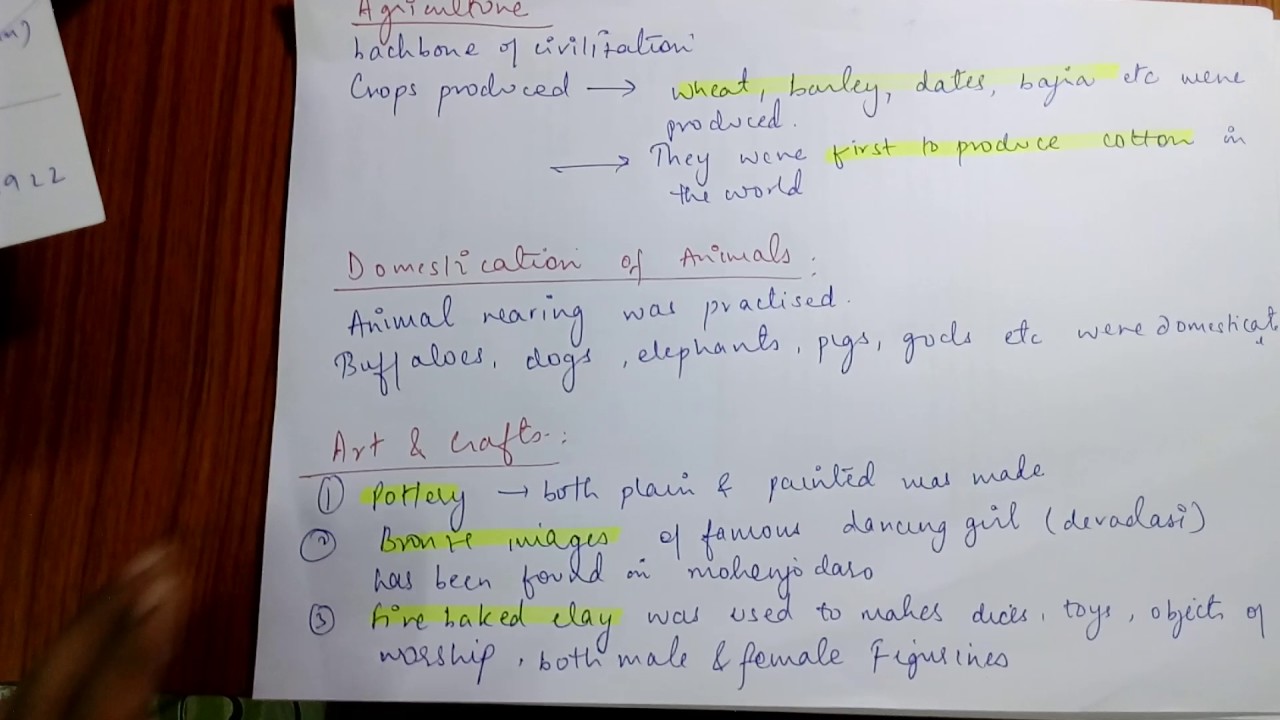 Agriculture
backbone of civilization
Crops produced → wheat, barley, dates, bajra etc were
produced.
→ They were first to produce cotton in
the world
Domestication of Animals:
Animal rearing was practised.
Buffaloes, dogs, elephants, pigs, gods etc were domesticat
Art & Crafts:
① Pottery → both plain & painted was made
② Bronze images of famous dancing girl (devadasi)
has been found in mohenjo daro
③ Fire baked clay was used to makes dices, toys, objects of
worship, both male & female Figurines
922